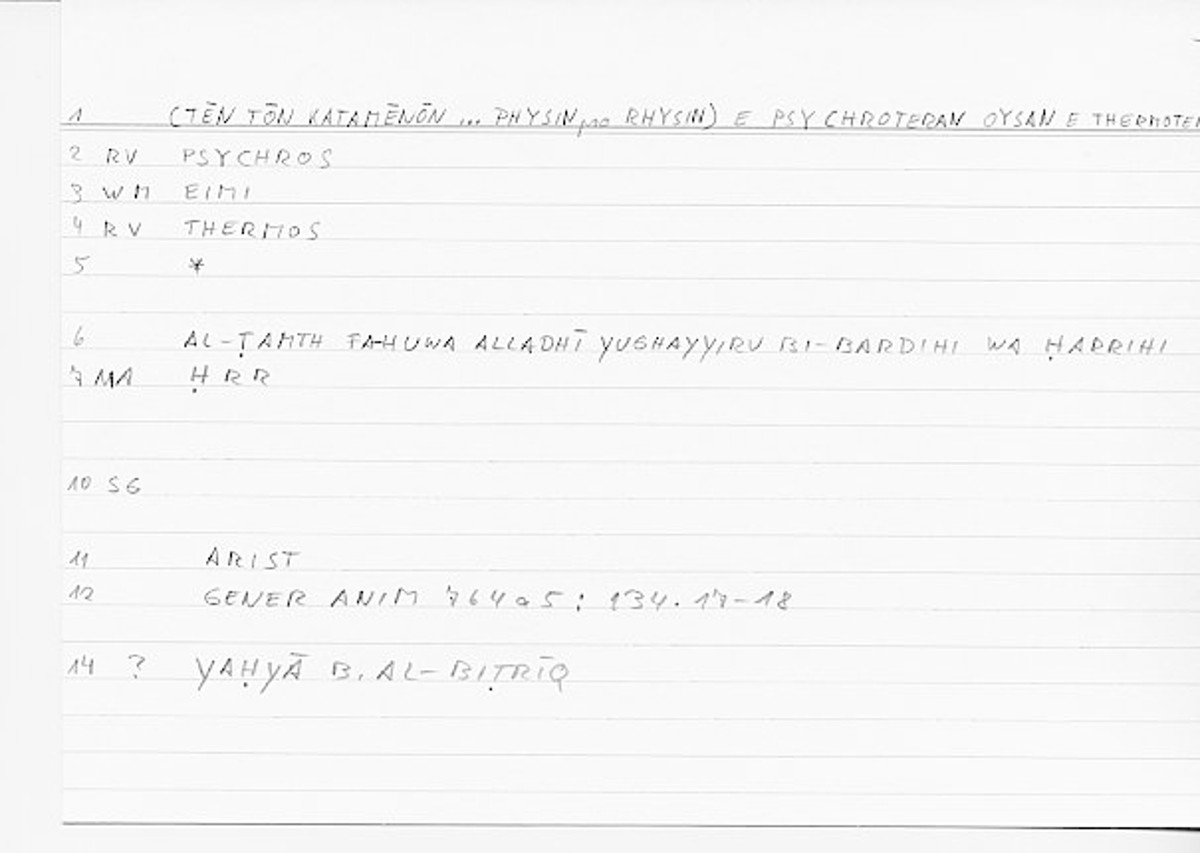 1 (TĒN TŌN KATAMĒNŌN ... PHYSIN pro RHYSIN) E PSYCHROTERAN OYSAN E THERMOTE
2 RV PSYCHROS
3 WM EIMI
4 RV THERMOS
5 *
6 AL-ṬAMTH FA-HUWA ALLADHĪ YUGHAYYIRU BI-BARDIHI WA ḤARRIHI
7 MA ḤRR
10 SG
11 ARIST
12 GENER ANIM 764a5: 134.17-18
14 ? YAḤYĀ B. AL-BIṬRĪQ